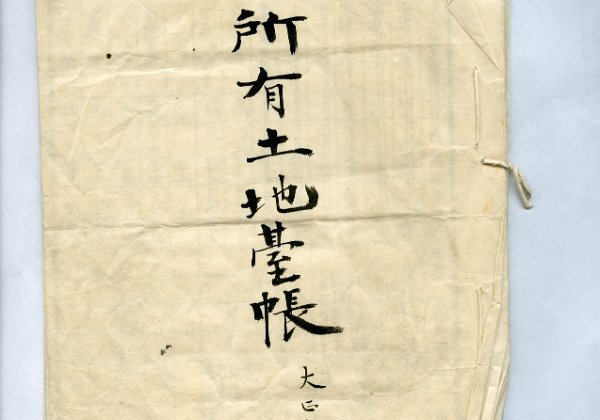 所有土地臺帳
大正